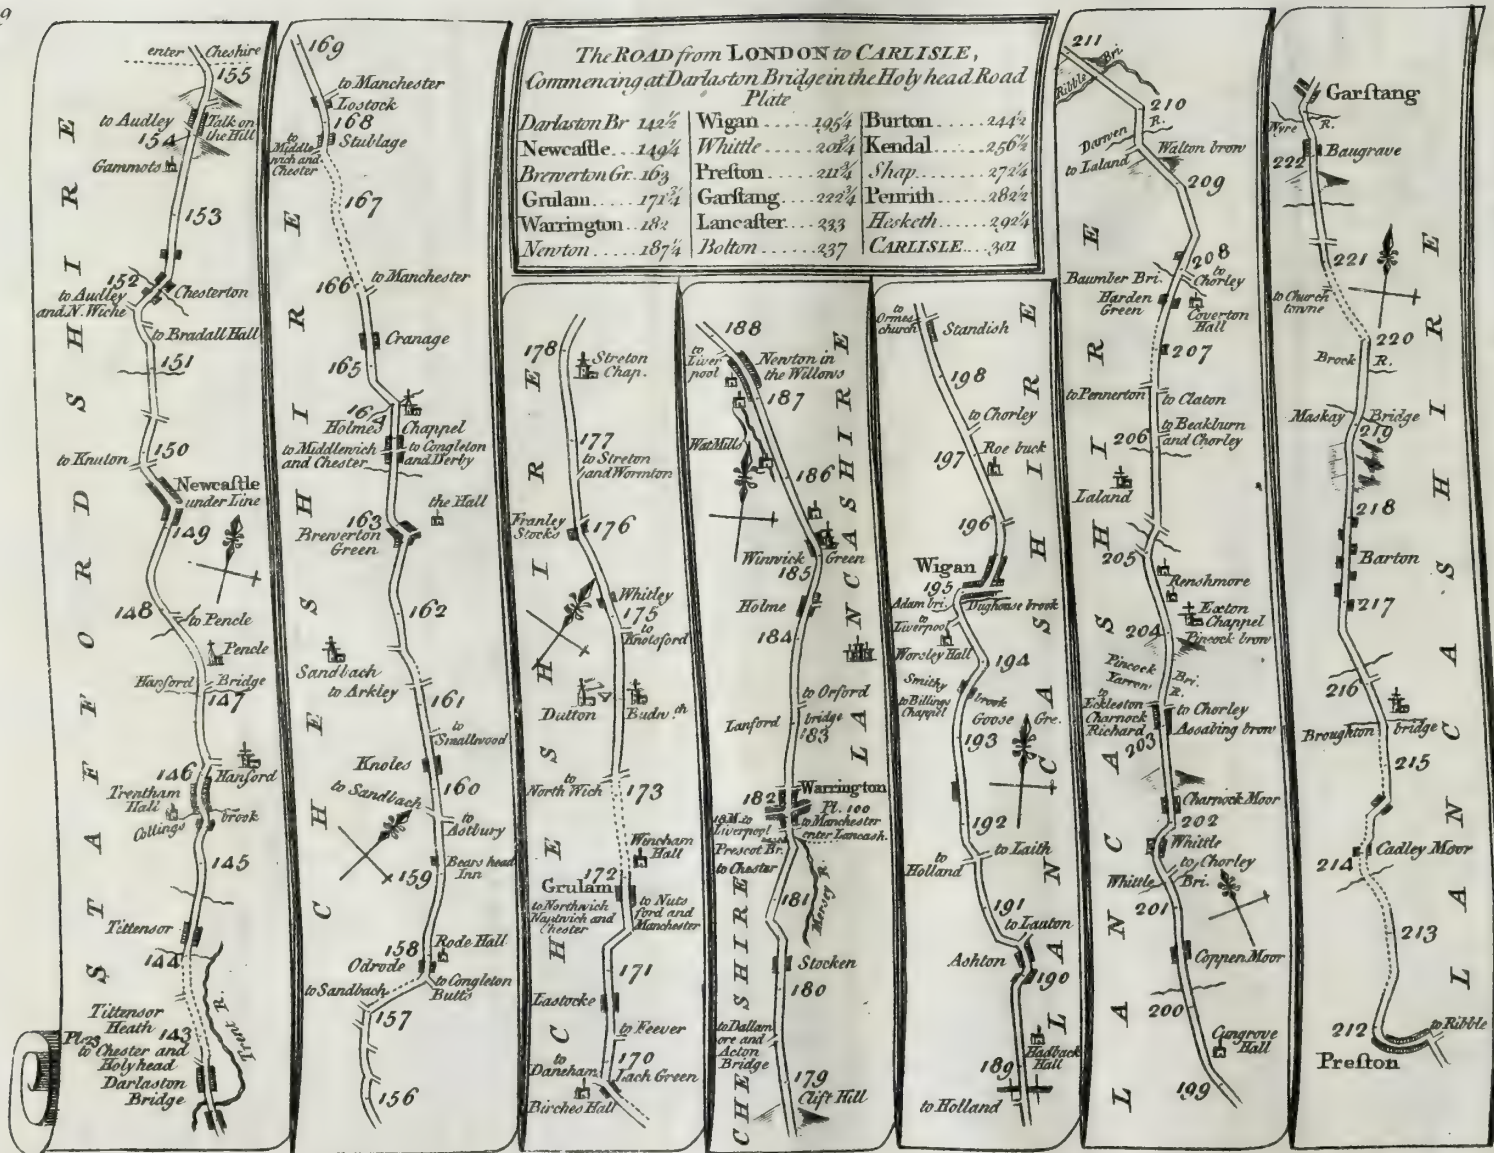 9
The ROAD from LONDON to CARLISLE,
Commencing at Darlaston Bridge in the Holy head Road
Plate
Darlaston Br 142½
Newcastle....149¼
Breverton Gr. 163
Grulam......171¾
Warrington..182
Newton.....187¼
Wigan.....195¼
Whittle.....201¾
Preston.....211¾
Garstang....222¾
Lancaster....233
Bolton.....237
Burton......244½
Kendal......256½
Shap......272¼
Penrith......282½
Hesketh.....292¼
CARLISLE....301
STAFFORDSHIRE
enter Cheshire
155
to Audley
Talk on
the Hill
154
Gammots
153
152
Chesterton
to Audley
and N. Wiche
to Bradall Hall
151
150
to Knuton
Newcastle
under Line
149
148
to Pencle
Pencle
Hanford Bridge
147
146
Hanford
Trentham
Hall
Collings brook
145
Tittensor
144
Trent R.
Tittensor
Heath
143
Pl. 23
to Chester and
Holyhead
Darlaston
Bridge
CHESHIRE
169
to Manchester
Lostock
168
Stublage
to
Middle
wich and
Chester
167
166
to Manchester
Cranage
165
164
Holmes Chappel
to Middlewich
and Chester
to Congleton
and Derby
the Hall
163
Breverton
Green
162
Sandbach
to Arkley
161
to
Smallwood
Knoles
160
to Sandbach
to
Astbury
Bears head
Inn
159
158
Rode Hall
Odrode
to Congleton
Butts
to Sandbach
157
156
CHESHIRE
178
Streton
Chap.
177
to Streton
and Wornton
Franley
Stocks
176
Whitley
175
to
Knotsford
Dutton
Budw.th
to
North Wich
173
Wincham
Hall
172
Grulam
to Northwich
Nantwich and
Chester
to Nuts
ford and
Manchester
171
Lastocke
to Feever
170
to
Daneham
Lach Green
Birches Hall
LANCASHIRE
188
to
Liver
pool
Newton in
the Willows
187
Wat Mills
186
Winwick Green
185
Holme
184
to Orford
Lanford bridge
183
182
Warrington
Pl. 100
18 M. to
Liverpool
to Manchester
enter Lancash.
Prescot Br.
to Chester
CHESHIRE
181
Mersey R.
Stocken
180
to Dallam
ore and
Acton
Bridge
179
Clift Hill
LANCASHIRE
to
Ormes
church
Standish
198
to Chorley
197
Roe buck
196
Wigan
195
Adam bri.
Dughouse brook
to
Liverpool
Worsley Hall
194
Smithy brook
to Billings
Chappel
Goose Gre.
193
192
to
Holland
to Laith
191
to Lauton
Ashton
190
Hadback
Hall
189
to Holland
LANCASHIRE
211
Ribble Bri.
210
Darwen R.
to Laland
Walton brow
209
208
Baumber Bri.
to
Chorley
Harden
Green
Coverton
Hall
207
to Pennerton
to Claton
206
to Beakburn
and Chorley
Laland
205
Renshmore
Exton
Chappel
204
Pincock brow
Pincock Bri.
Yarrow R.
to
Eckleston
Charnock
Richard
to Chorley
Assabing brow
203
Charnock Moor
202
Whittle
to Chorley
Whittle Bri.
201
Coppen Moor
200
Cungrove
Hall
199
LANCASHIRE
Garstang
Wyre R.
222
Baugrave
221
to Church
towne
220
Brock R.
Maskay Bridge
219
218
Barton
217
216
Broughton bridge
215
214
Cadley Moor
213
212
to Ribble
Preston